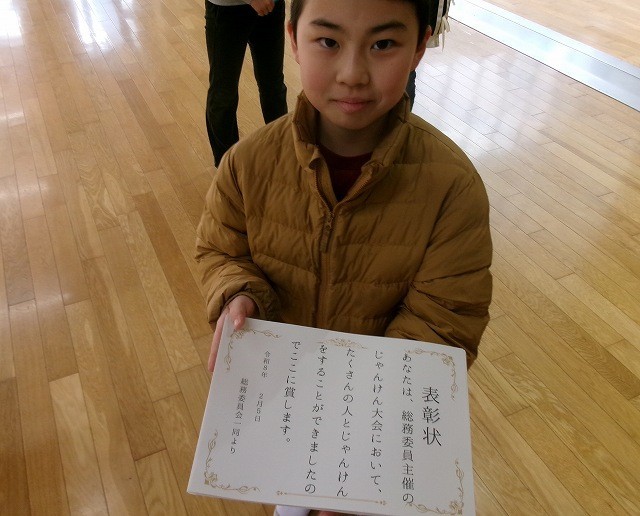 表彰状
あなたは、総務委員主催の
じゃんけん大会において、
たくさんの人とじゃんけん
をすることができましたの
でここに賞します。
令和8年　2月5日
総務委員会一同より